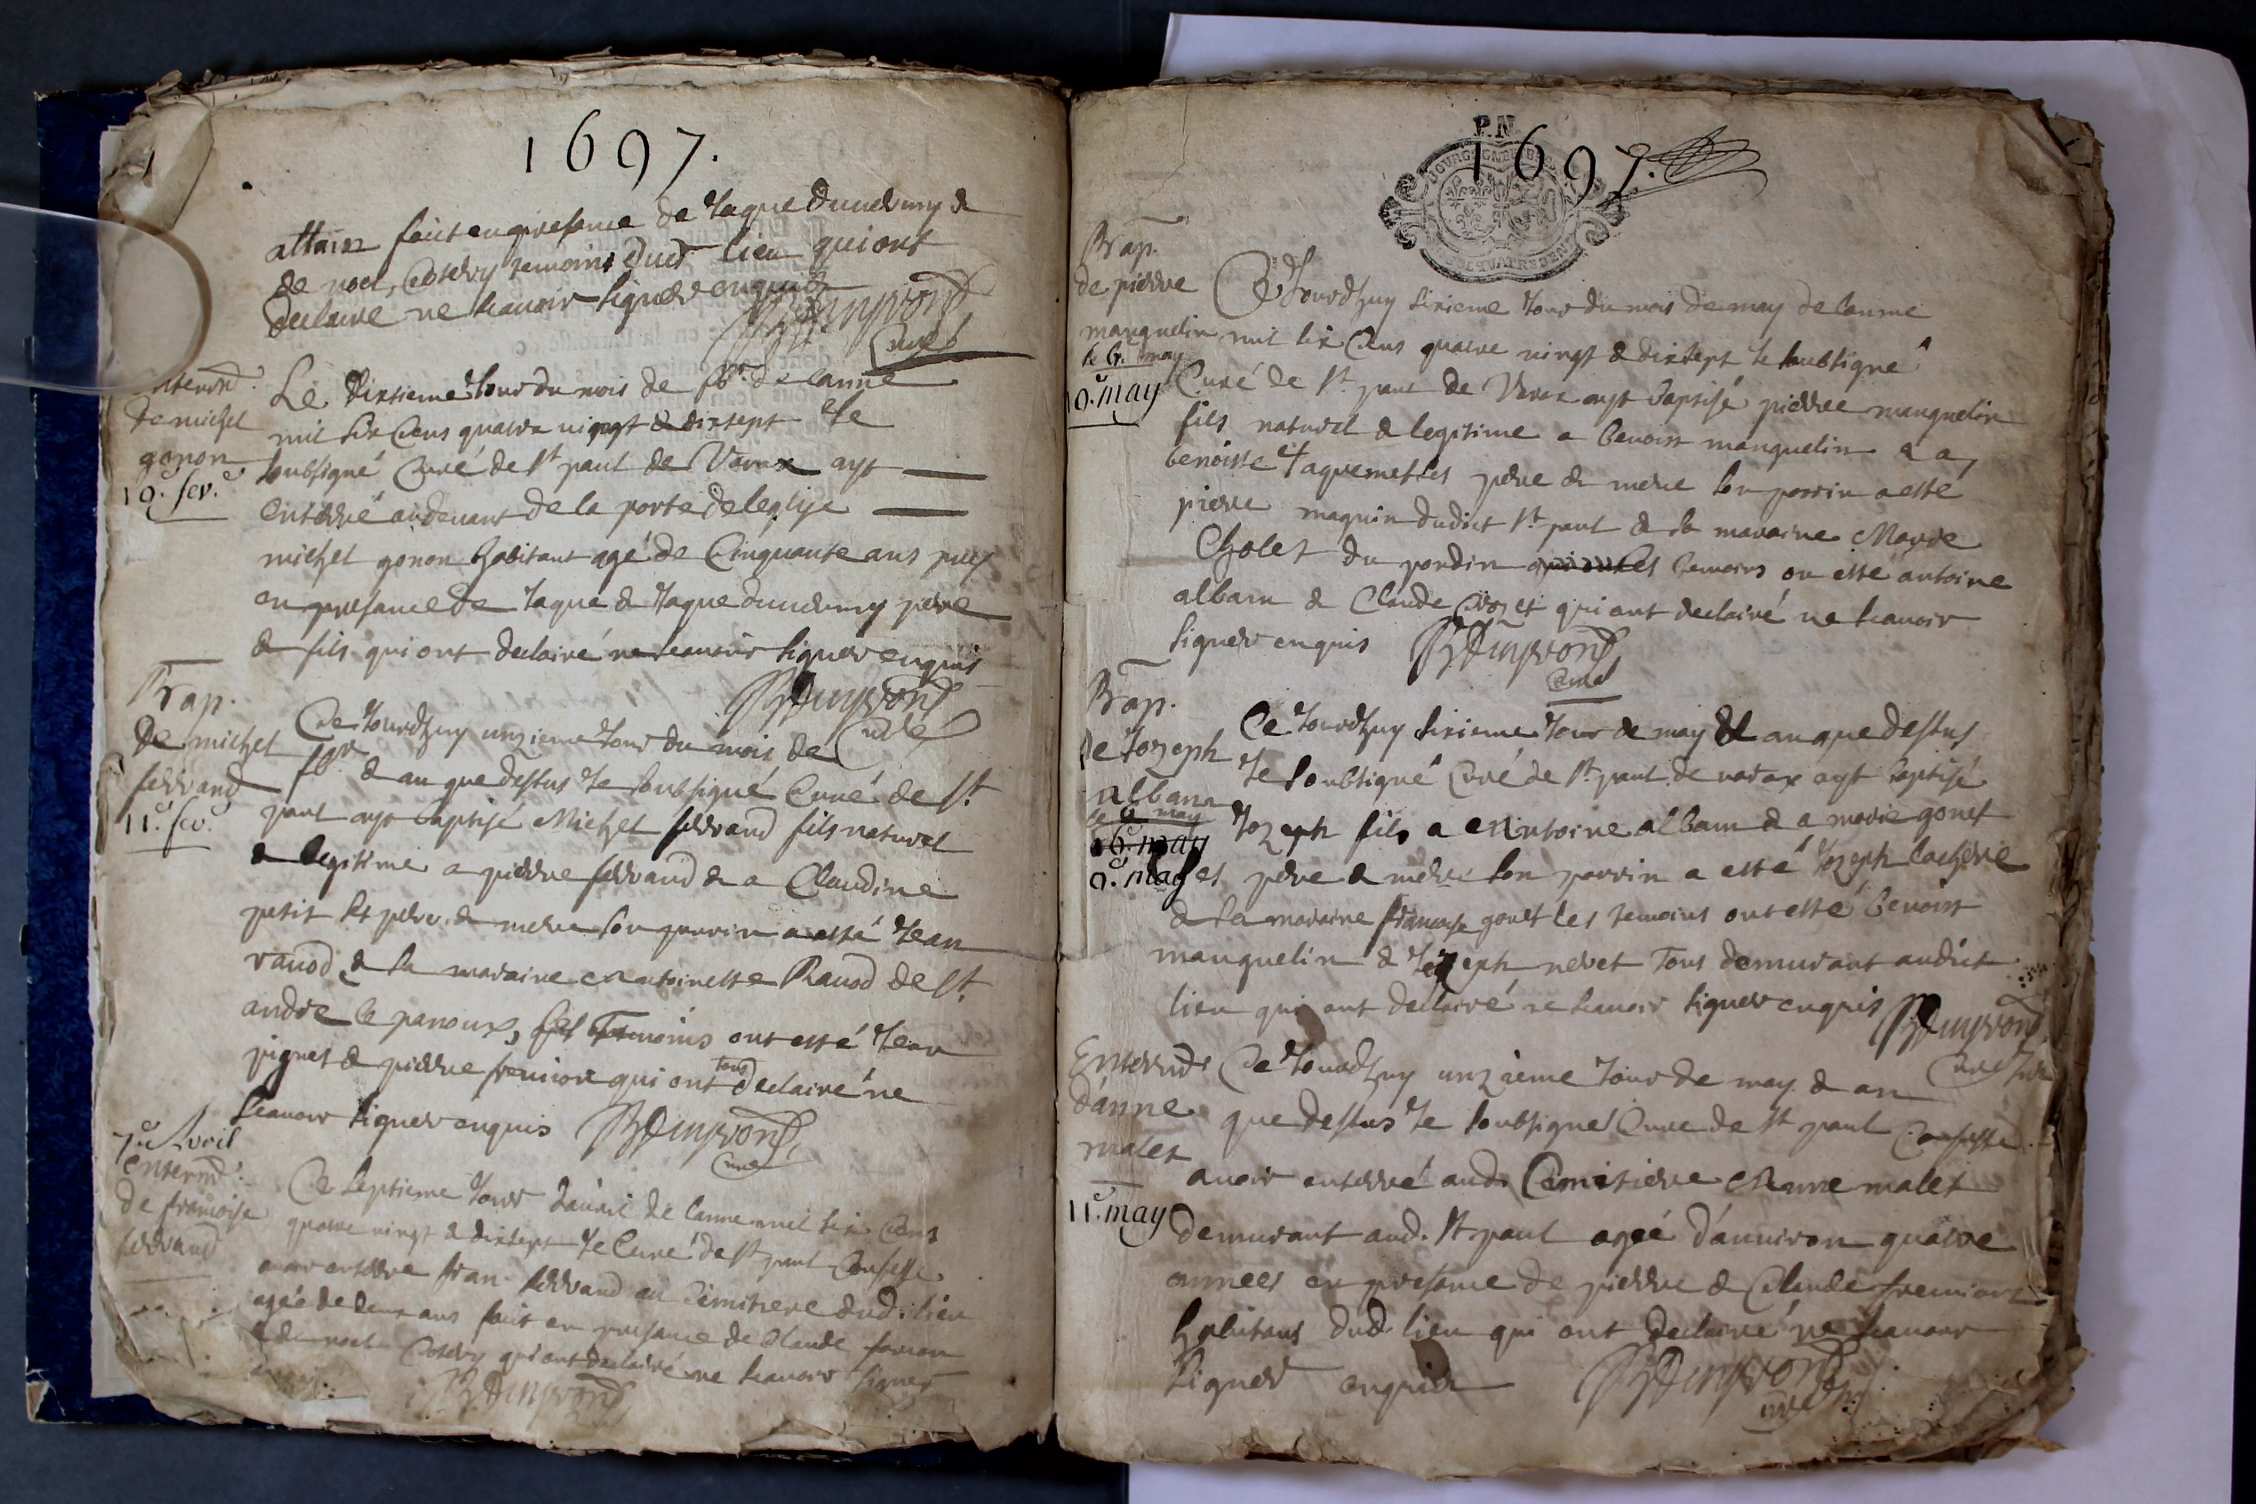 1697.
attain fait en presance de Jaque Dundruy &
de noel Costery temoins dud lieu qui ont
declaire ne scauoir signer enquis
Curé
Enterm.
de michel
gonon
10.e fev.
Le dixieme Jour du mois de fbr de lanné
mil six Cens quatre uingt & dixsept Je
soubsigné Curé de St paul de Varax ay
enterré audeuant de la porte de leglise
michel gonon habitant agé de Cinquante ans
en presance de Jaque & Jaque dundruy pere
& fils qui ont declairé ne scauoir signer enquis
Curé
Bap.
de michel
ferrand
11.e fev.
Ce Jourdhuy unzieme Jour du mois de
fbr & an que dessus Je soubsigné Curé de St
paul ay baptisé Michel ferrand fils naturel
& legitime a pierre ferrand & a Claudine
petit ses pere & mere son parrin a esté Jean
rauod & sa maraine Antoinette Rauod de St
andre le panoux, les temoins ont esté Jean
pignet & pierre fremion qui ont tous declairé ne
scauoir signer enquis
Curé
7.e Avril
enterm.
de francoise
ferrand
Ce septieme Jour dauril de lanne mil six Cens
quatre uingt & dixsept Je Curé de St paul Confesse
auoir enterre fran. ferrand au Cimitiere dud. lieu
agée de deux ans fait en presance de Claude
& de noel Costery qui ont declairé ne scauoir signer
P.N.
1697.
Bap.
de pierre
manguelin
le 6. may
9.e may
Ce Jourdhuy sixieme Jour du mois de may de lanne
mil six Cens quatre uingt & dixsept Je soubsigné
Curé de St paul de Varax ay baptisé pierre manguelin
fils naturel & legitime a benoist manguelin & a
benoiste Jaquemet ses pere & mere son parrin a esté
pierre maguin dudict St paul & sa maraine Marie
Cholet du pordin les temoins on esté antoine
alban & Claude Crozet qui ont declairé ne scauoir
signer enquis
Curé
Bap.
de Jozeph
alban
le 6 may
6.e may
9.e may
Ce Jourdhuy sixieme Jour de may & an que dessus
Je soubsigné Curé de St paul de varax ay baptisé
Jozeph fils a Antoine alban & a marie gonet
ses pere & mere son parrin a esté Jozeph lachere
& sa maraine francoise gonet les temoins ont esté benoist
manguelin & Jozeph nevet Tous demurant audict
lieu qui ont declairé ne scauoir signer enquis
Curé
Enterm.
d'anne
malet
11.e may
Ce Jourdhuy unzieme Jour de may & an
que dessus Je soubsigné Curé de St paul Confesse
auoir enterré aud. Cimitiere Anne malet
demurant aud. St paul agée d'anuiron quatre
années en presance de pierre & Claude fremion
habitans dud. lieu qui ont declairé ne scauoir
signer enquis